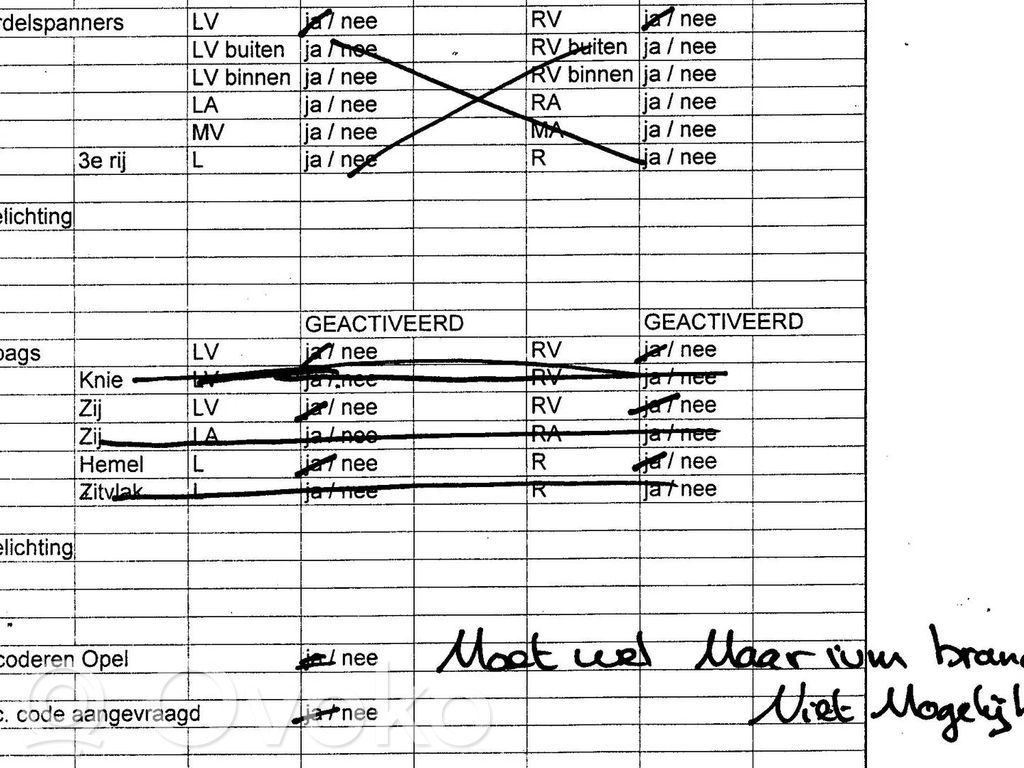 rdelspanners LV ja / nee RV ja / nee
LV buiten ja / nee RV buiten ja / nee
LV binnen ja / nee RV binnen ja / nee
LA ja / nee RA ja / nee
MV ja / nee MA ja / nee
3e rij L ja / nee R ja / nee
elichting
GEACTIVEERD GEACTIVEERD
bags LV ja / nee RV ja / nee
Knie LV ja / nee RV ja / nee
Zij LV ja / nee RV ja / nee
Zij LA ja / nee RA ja / nee
Hemel L ja / nee R ja / nee
Zitvlak L ja / nee R ja / nee
elichting
coderen Opel ja / nee Moet wel Maar ivm bran
c. code aangevraagd ja / nee Niet Mogelijk
Ovoko